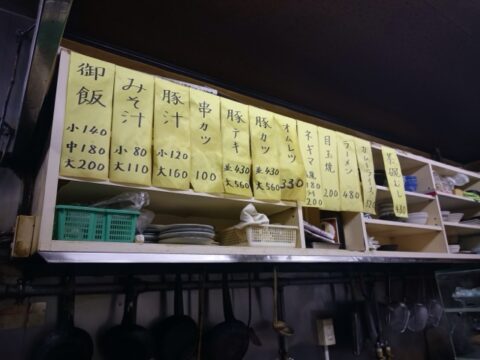 御飯
小140
中180
大200
みそ汁
小80
大110
豚汁
小120
大160
串カツ
100
豚テキ
並430
大560
豚カツ
並430
大560
オムレツ
330
ネギマ
180
200
目玉焼
200
ラーメン
480
カレーライス